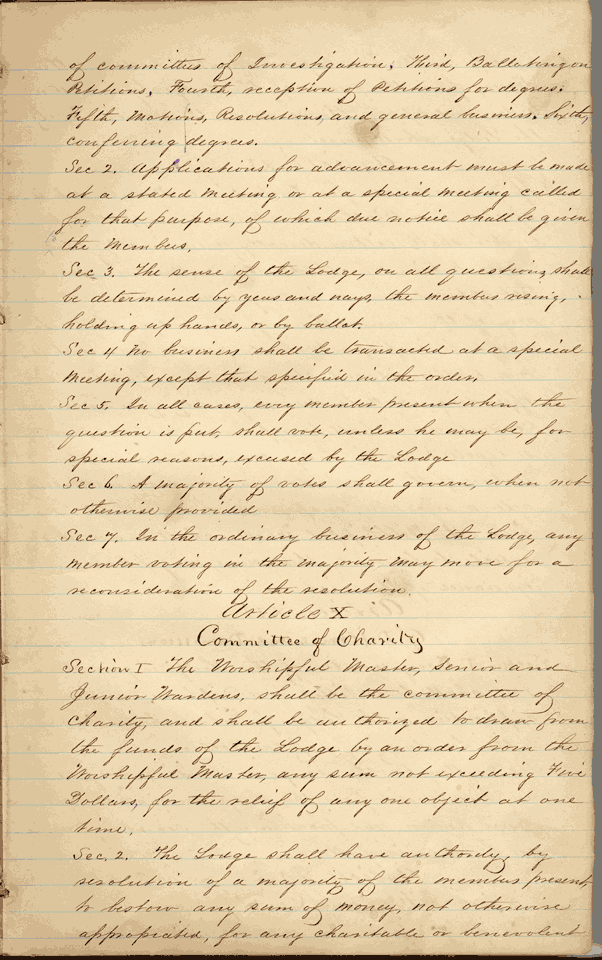 of committees of Investigation. Third, Ballating on
Petitions. Fourth, reception of Petitions for degrees.
Fifth, Motions, Resolutions, and general business. Sixth,
conferring degrees.
Sec 2. Applications for advancement must be made
at a stated meeting or at a special meeting called
for that purpose, of which due notice shall be given
the members.
Sec 3. The sense of the Lodge, on all questions, shall
be determined by yeas and nays, the members rising,
holding up hands, or by ballot.
Sec 4 No business shall be transacted at a special
meeting, except that specified in the order.
Sec 5. In all cases, every member present when the
question is put, shall vote, unless he may be, for
special reasons, excused by the Lodge
Sec 6. A majority of votes shall govern, when not
otherwise provided
Sec 7. In the ordinary business of the Lodge, any
member voting in the majority may move for a
reconsideration of the resolution.
Article X
Committee of Charity
Section I The Worshipful Master, Senior and
Junior Wardens, shall be the committee of
charity, and shall be authorized to draw from
the funds of the Lodge by an order from the
Worshipful Master, any sum not exceeding Five
Dollars, for the relief of any one object at one
time.
Sec. 2. The Lodge shall have authority, by
resolution of a majority of the members present,
to bestow any sum of money, not otherwise
appropiated, for any charitable or benevolent